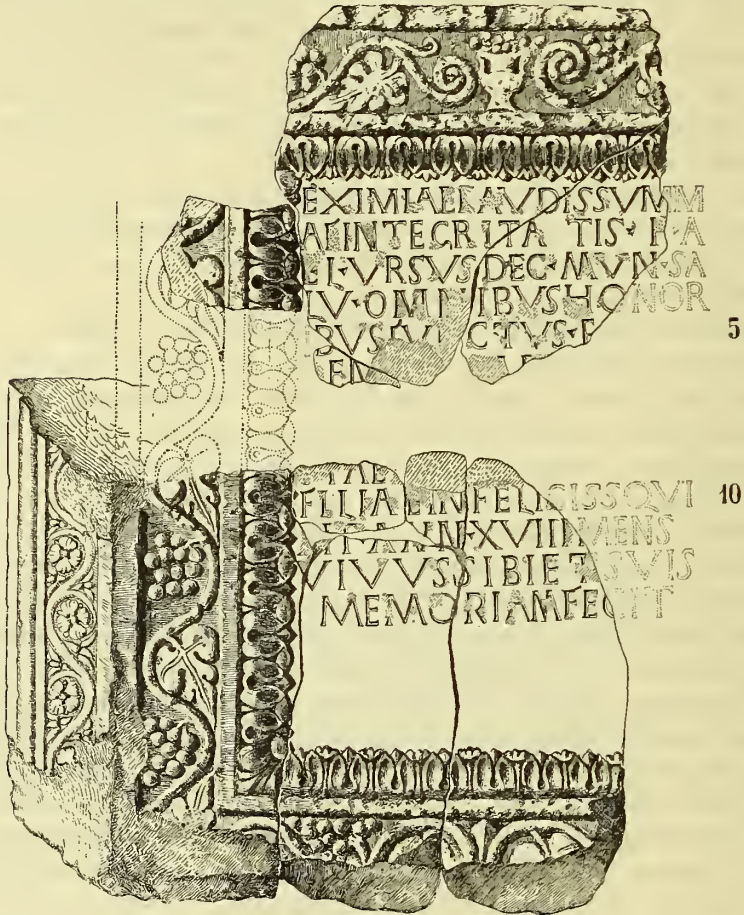 EXIMIAE LAVDIS SVMM
AE INTEGRITATIS · F · A
EL · VRSVS DEC · MVN · SA
LV · OMNIBVS HONOR
5
IBVS FVNCTVS · E
EN
ITAE
FILIAE INFELICISS QVI
10
ANN · XVIII MENS
VIVVS SIBI ET SVIS
MEMORIAM FECIT